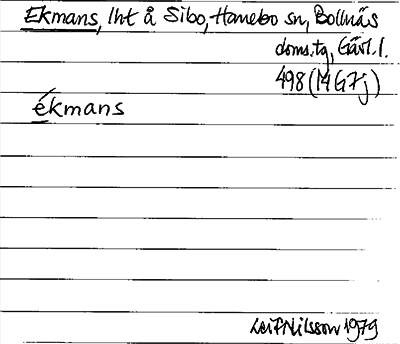 Ekmans, lht å Sibo, Hanebo sn, Bollnäs
doms.tg, Gävl. l.
498 (14 G 7j)
ékmans
Leif Nilsson 1979